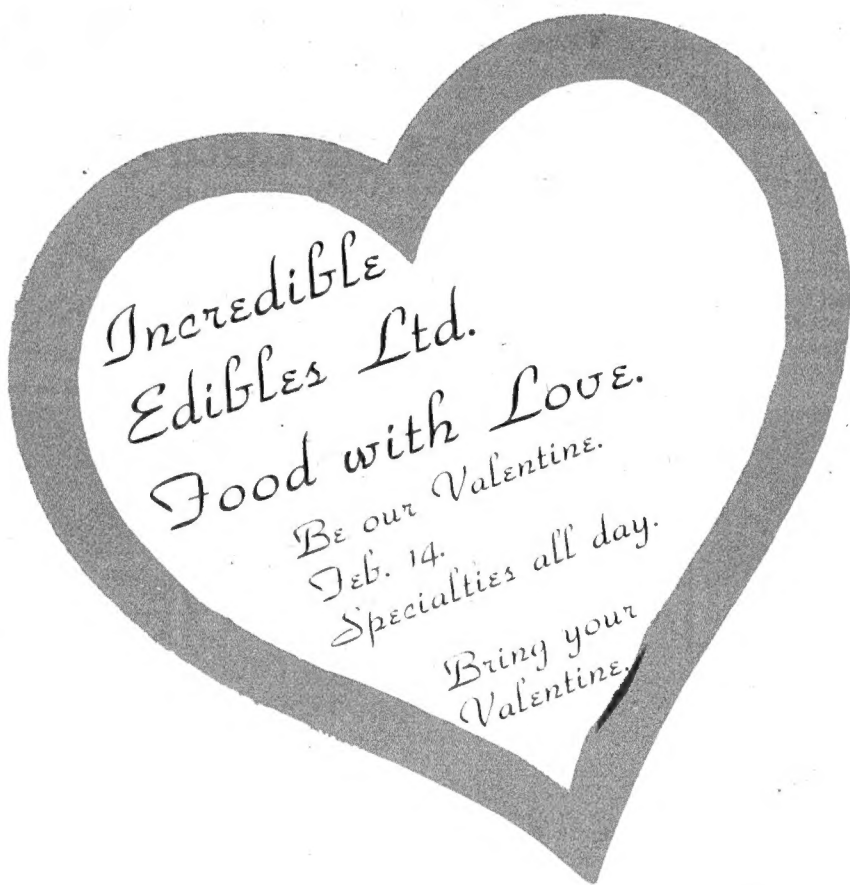 Incredible
Edibles Ltd.
Food with Love.
Be our Valentine.
Feb. 14.
Specialties all day.
Bring your
Valentine.